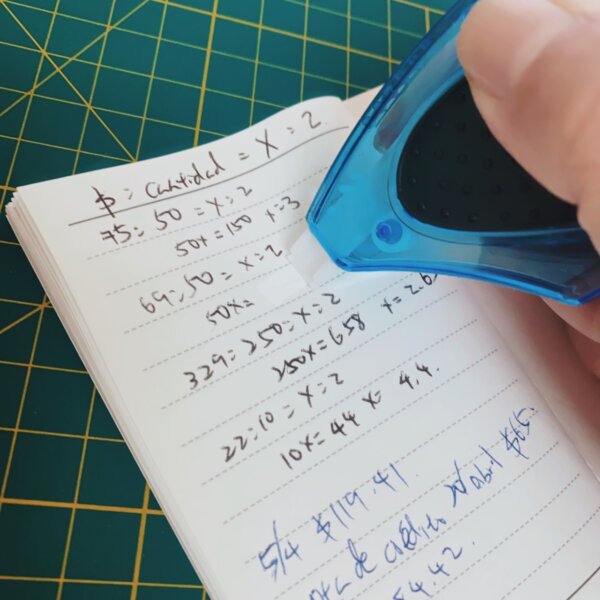 $ : cantidad = X : 2
75 : 50 = X : 2
50x = 150 x = 3
69 : 50 = x : 2
50x =
329 : 250 = X : 2
250X = 658 x = 2.6
22 : 10 = X : 2
10x = 44 x = 4.4.
5/4 $119.41
de crédito abril $65.
54.42.